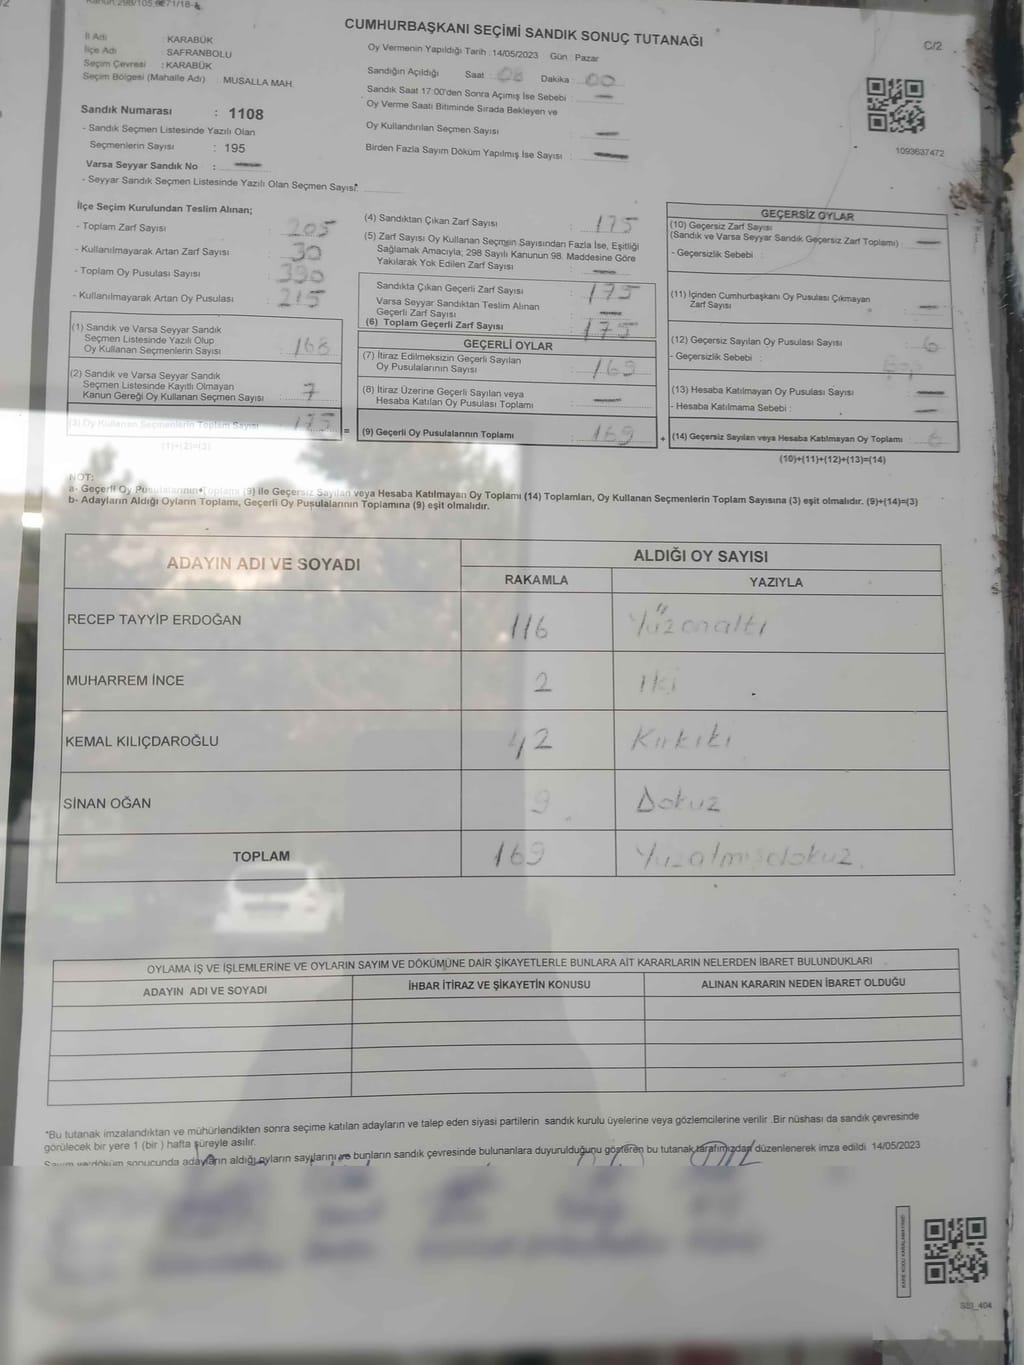 CUMHURBAŞKANI SEÇİMİ SANDIK SONUÇ TUTANAĞI
C/2
İl Adı : KARABÜK
İlçe Adı : SAFRANBOLU
Seçim Çevresi : KARABÜK
Seçim Bölgesi (Mahalle Adı) : MUSALLA MAH.
Sandık Numarası : 1108
- Sandık Seçmen Listesinde Yazılı Olan
Seçmenlerin Sayısı : 195
Varsa Seyyar Sandık No :
- Seyyar Sandık Seçmen Listesinde Yazılı Olan Seçmen Sayısı:
Oy Vermenin Yapıldığı Tarih : 14/05/2023 Gün : Pazar
Sandığın Açıldığı Saat : 08 Dakika : 00
Sandık Saat 17:00'den Sonra Açılmış İse Sebebi :
Oy Verme Saati Bitiminde Sırada Bekleyen ve
Oy Kullandırılan Seçmen Sayısı :
Birden Fazla Sayım Döküm Yapılmış İse Sayısı :
1093637472
İlçe Seçim Kurulundan Teslim Alınan;
- Toplam Zarf Sayısı : 205
- Kullanılmayarak Artan Zarf Sayısı : 30
- Toplam Oy Pusulası Sayısı : 390
- Kullanılmayarak Artan Oy Pusulası : 215
(1) Sandık ve Varsa Seyyar Sandık
Seçmen Listesinde Yazılı Olup
Oy Kullanan Seçmenlerin Sayısı : 168
(2) Sandık ve Varsa Seyyar Sandık
Seçmen Listesinde Kayıtlı Olmayan
Kanun Gereği Oy Kullanan Seçmen Sayısı : 7
(3) Oy Kullanan Seçmenlerin Toplam Sayısı : 175
(1)+(2)=(3)
(4) Sandıktan Çıkan Zarf Sayısı : 175
(5) Zarf Sayısı Oy Kullanan Seçmen Sayısından Fazla İse, Eşitliği
Sağlamak Amacıyla; 298 Sayılı Kanunun 98. Maddesine Göre
Yakılarak Yok Edilen Zarf Sayısı :
Sandıkta Çıkan Geçerli Zarf Sayısı : 175
Varsa Seyyar Sandıktan Teslim Alınan
Geçerli Zarf Sayısı :
(6) Toplam Geçerli Zarf Sayısı : 175
GEÇERLİ OYLAR
(7) İtiraz Edilmeksizin Geçerli Sayılan
Oy Pusulalarının Sayısı : 169
(8) İtiraz Üzerine Geçerli Sayılan veya
Hesaba Katılan Oy Pusulası Toplamı :
= (9) Geçerli Oy Pusulalarının Toplamı : 169
GEÇERSİZ OYLAR
(10) Geçersiz Zarf Sayısı
(Sandık ve Varsa Seyyar Sandık Geçersiz Zarf Toplamı) :
- Geçersizlik Sebebi :
(11) İçinden Cumhurbaşkanı Oy Pusulası Çıkmayan
Zarf Sayısı :
(12) Geçersiz Sayılan Oy Pusulası Sayısı : 6
- Geçersizlik Sebebi :
(13) Hesaba Katılmayan Oy Pusulası Sayısı :
- Hesaba Katılmama Sebebi :
+ (14) Geçersiz Sayılan veya Hesaba Katılmayan Oy Toplamı : 6
(10)+(11)+(12)+(13)=(14)
NOT:
a- Geçerli Oy Pusulalarının Toplamı (9) ile Geçersiz Sayılan veya Hesaba Katılmayan Oy Toplamı (14) Toplamları, Oy Kullanan Seçmenlerin Toplam Sayısına (3) eşit olmalıdır. (9)+(14)=(3)
b- Adayların Aldığı Oyların Toplamı, Geçerli Oy Pusulalarının Toplamına (9) eşit olmalıdır.
ADAYIN ADI VE SOYADI ALDIĞI OY SAYISI
RAKAMLA YAZIYLA
RECEP TAYYİP ERDOĞAN 116 Yüzonaltı
MUHARREM İNCE 2 İki
KEMAL KILIÇDAROĞLU 42 Kırkiki
SİNAN OĞAN 9 Dokuz
TOPLAM 169 Yüzaltmışdokuz
OYLAMA İŞ VE İŞLEMLERİNE VE OYLARIN SAYIM VE DÖKÜMÜNE DAİR ŞİKAYETLERLE BUNLARA AİT KARARLARIN NELERDEN İBARET BULUNDUKLARI
ADAYIN ADI VE SOYADI İHBAR İTİRAZ VE ŞİKAYETİN KONUSU ALINAN KARARIN NEDEN İBARET OLDUĞU
*Bu tutanak imzalandıktan ve mühürlendikten sonra seçime katılan adayların ve talep eden siyasi partilerin sandık kurulu üyelerine veya gözlemcilerine verilir .Bir nüshası da sandık çevresinde
görülecek bir yere 1 (bir ) hafta süreyle asılır.
Sayım ve döküm sonucunda adayların aldığı oyların sayılarını ve bunların sandık çevresinde bulunanlara duyurulduğunu gösteren bu tutanak tarafımızdan düzenlenerek imza edildi 14/05/2023
SSI_404